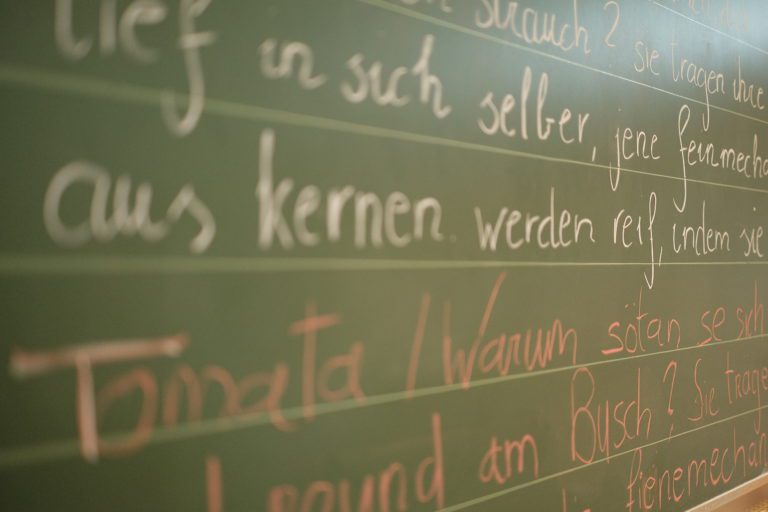 Strauch? sie tragen ihre
tief in sich selber, jene feinmecha
aus kernen. werden reif, indem sie
Tomata / Warum sötan se sich
am Busch? Sie träge
fienemechan